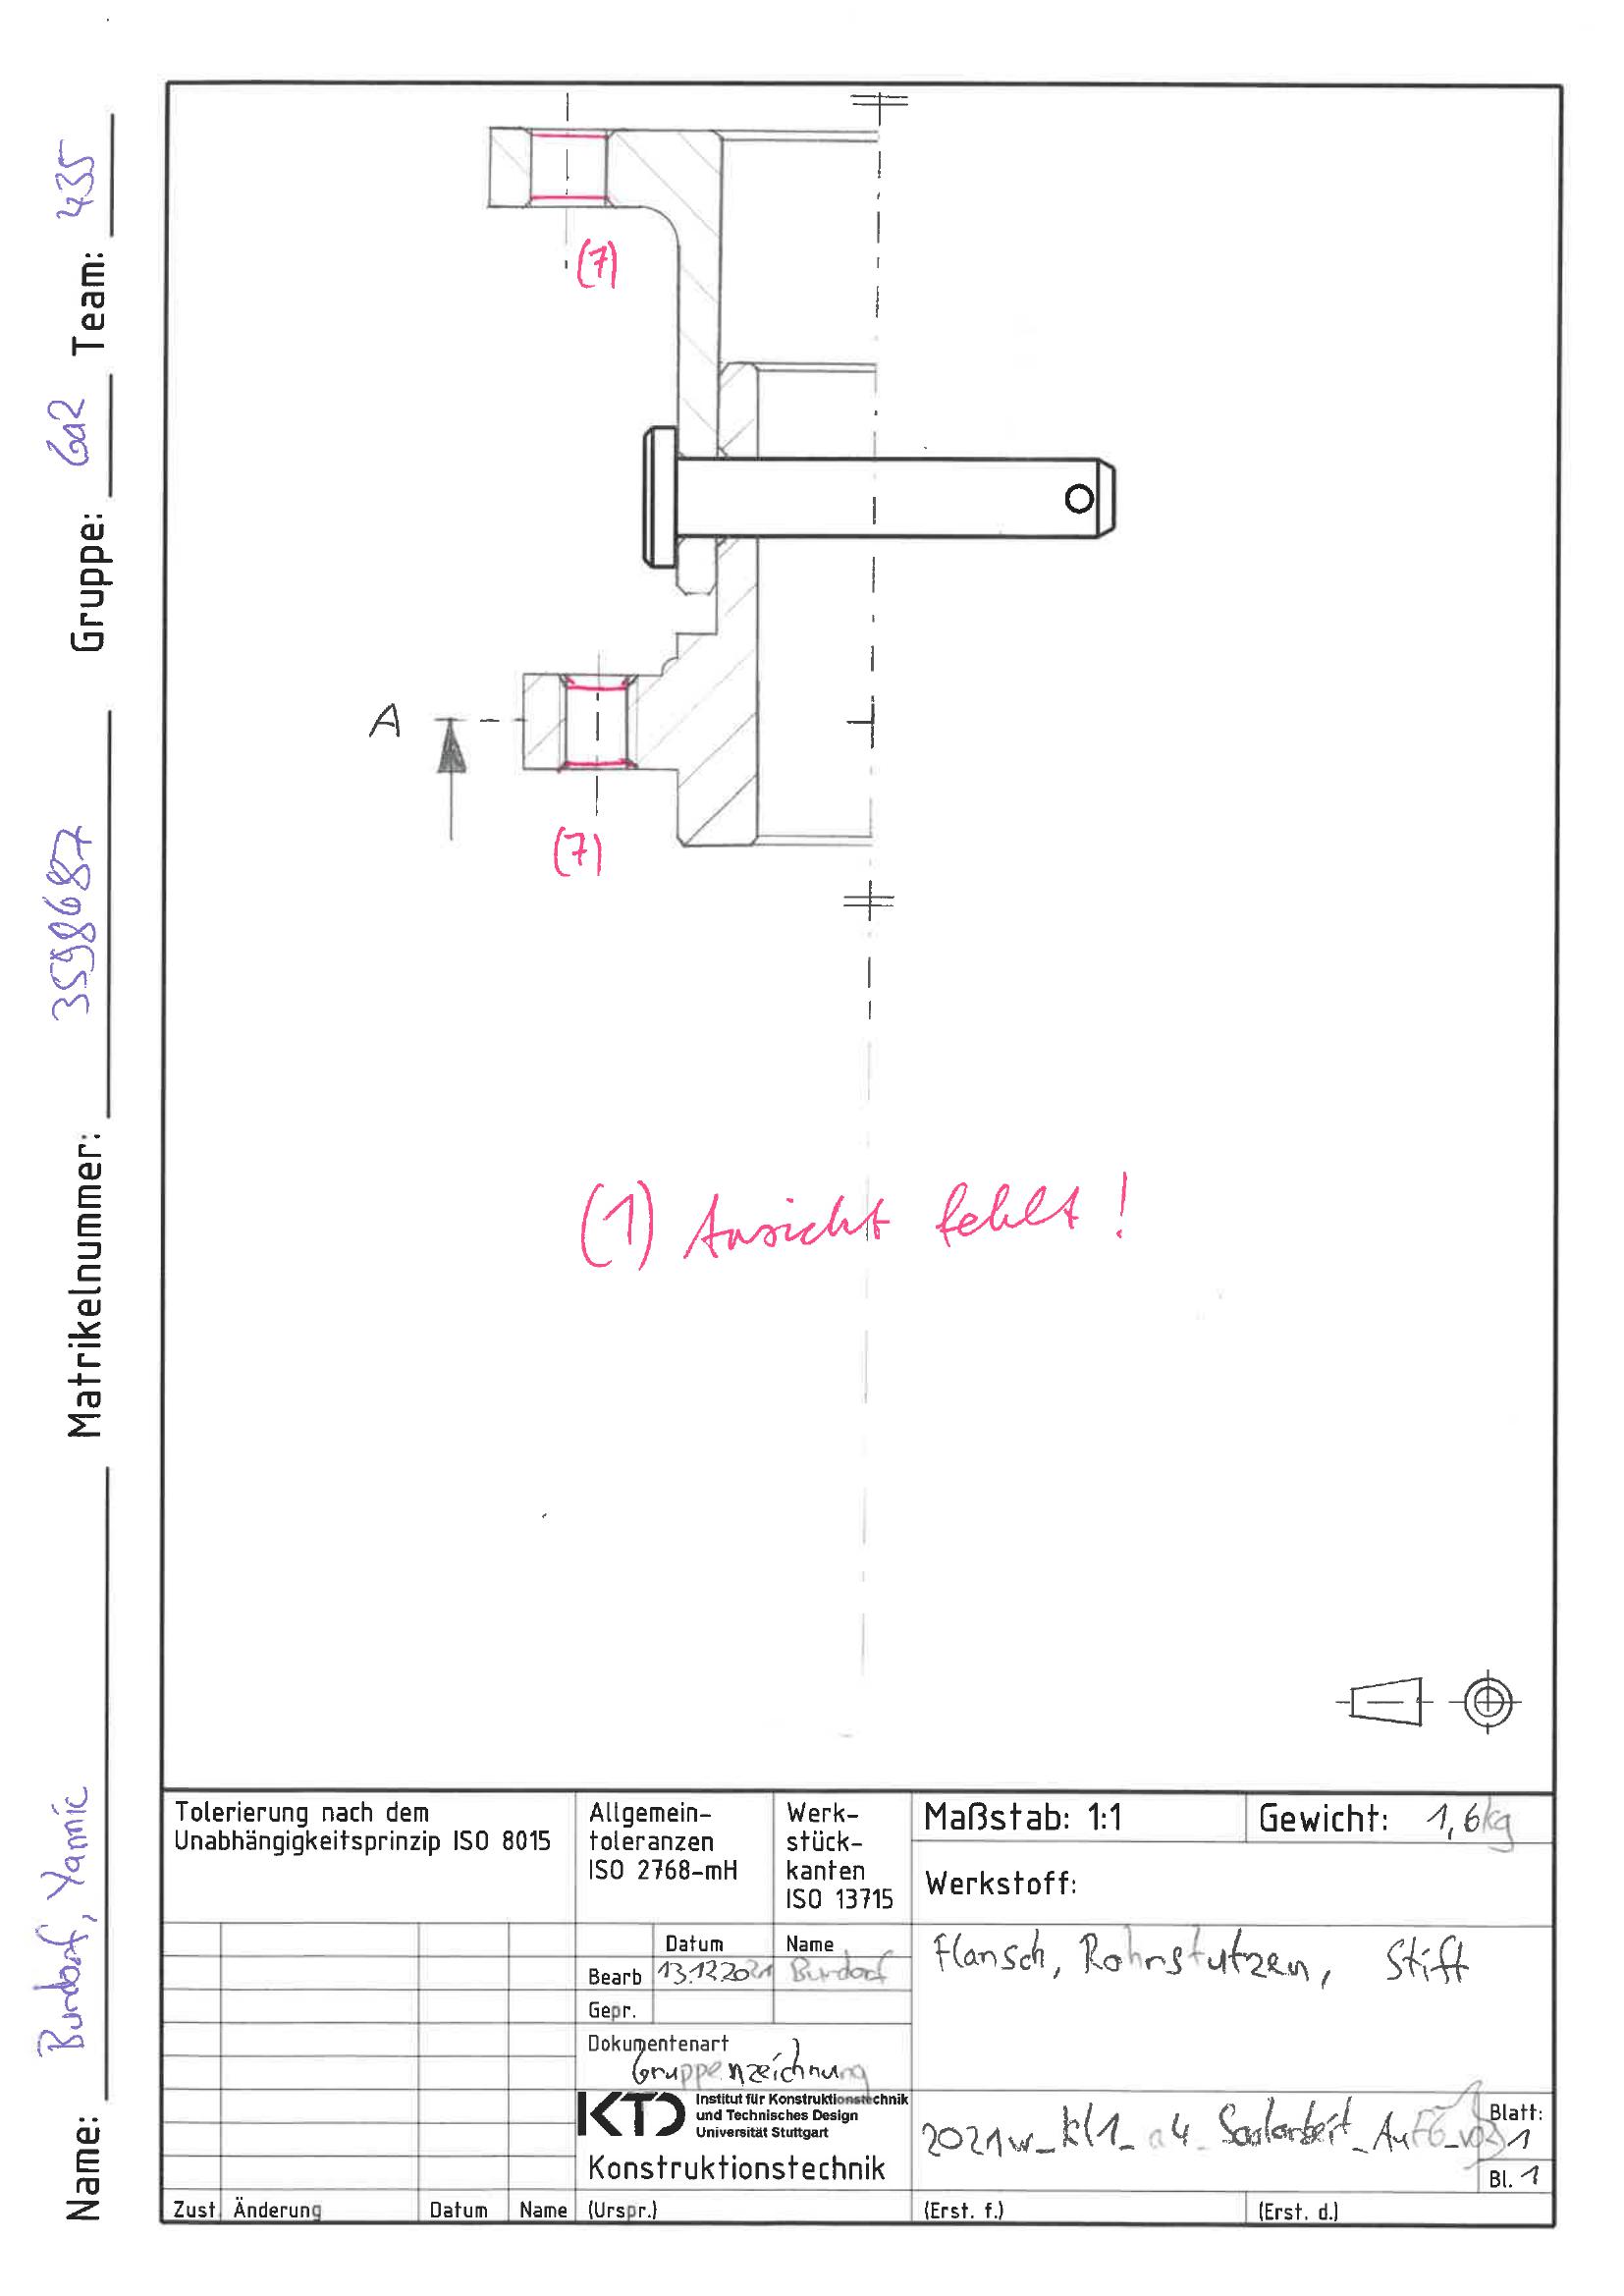 Name: Burdorf, Yannic Matrikelnummer: 3598687 Gruppe: 6a2 Team: 435
(7)
A
(7)
(1) Ansicht fehlt!
Tolerierung nach dem
Unabhängigkeitsprinzip ISO 8015
Allgemein-
toleranzen
ISO 2768-mH
Werk-
stück-
kanten
ISO 13715
Maßstab: 1:1
Gewicht: 1,6kg
Werkstoff:
Datum Name
Bearb 13.12.2021 Burdorf
Gepr.
Flansch, Rohrstutzen, Stift
Dokumentenart
Gruppenzeichnung
KTD Institut für Konstruktionstechnik
und Technisches Design
Universität Stuttgart
Konstruktionstechnik
2021w_kl1_a4_Saalarbeit_
Blatt:
1
Bl. 1
Zust. Änderung Datum Name (Urspr.) (Erst. f.) (Erst. d.)